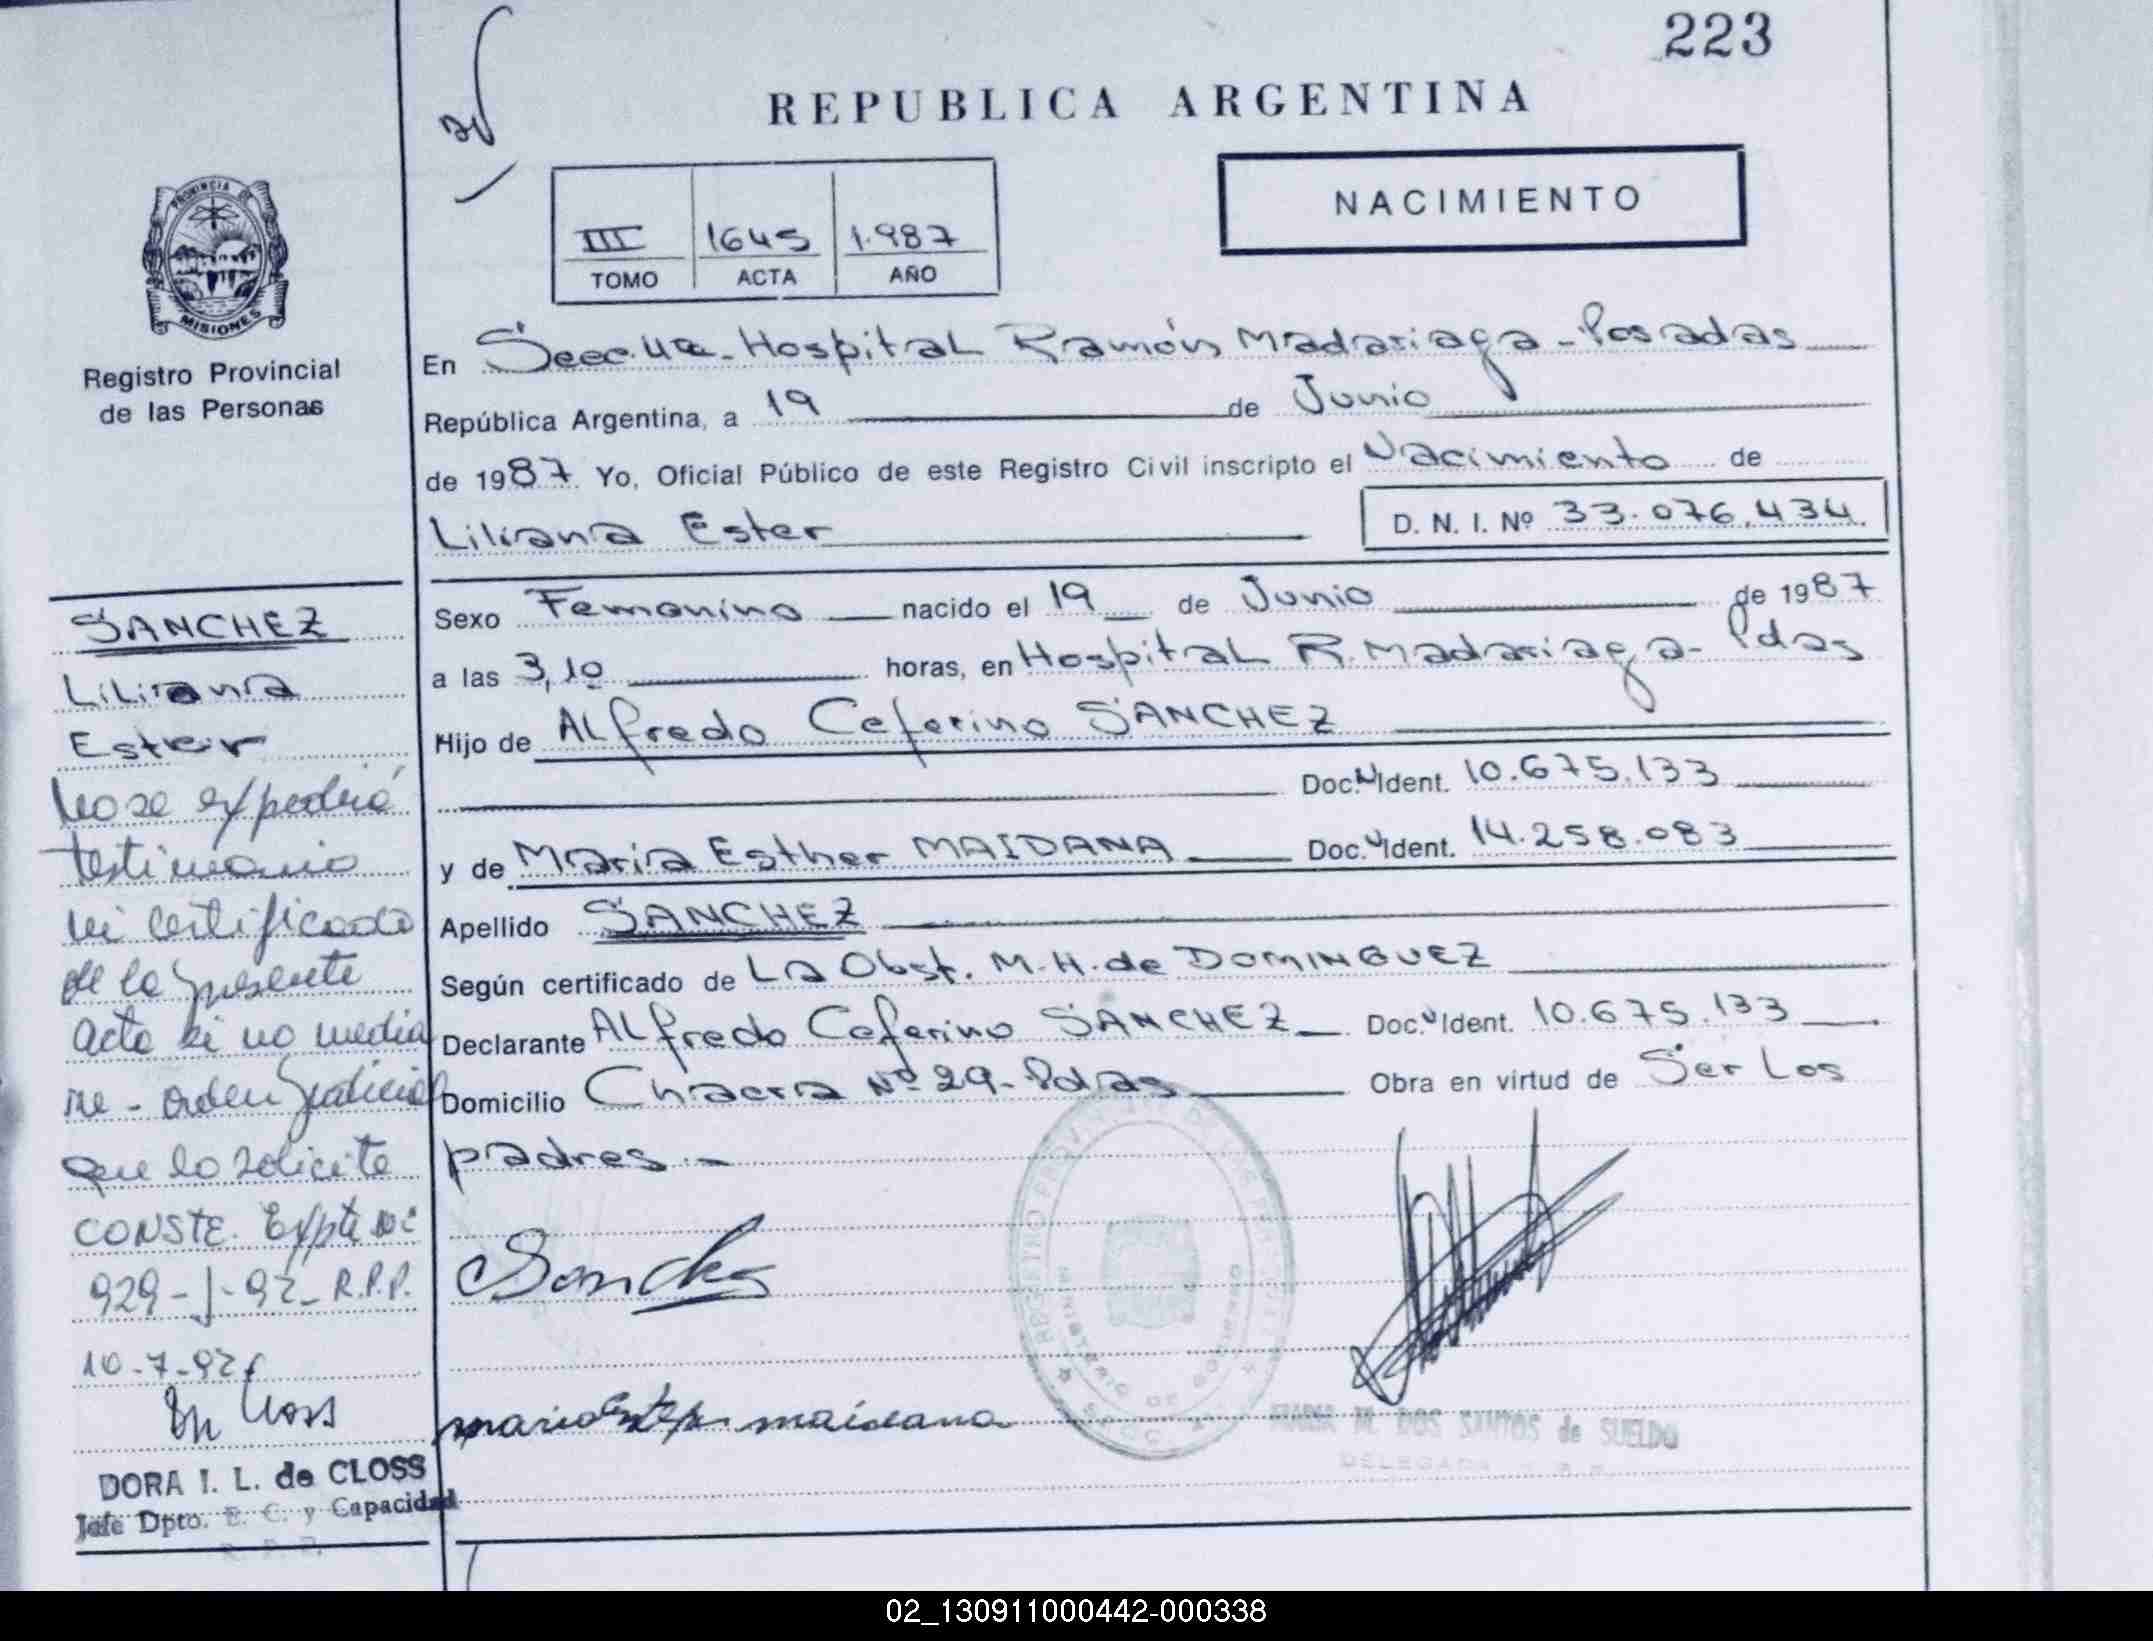 223
REPUBLICA ARGENTINA
NACIMIENTO
III 1645 1.987
TOMO ACTA AÑO
PROVINCIA DE
MISIONES
Registro Provincial
de las Personas
En Secc. Hospital Ramón Madariaga - Posadas
República Argentina, a 19 de Junio
de 1987. Yo, Oficial Público de este Registro Civil inscripto el Nacimiento de
Liliana Ester D. N. I. Nº 33.076.434.
Sexo Femenino nacido el 19 de Junio de 1987
a las 3,10 horas, en Hospital R. Madariaga - Pdas
Hijo de Alfredo Ceferino SANCHEZ
Doc. N Ident. 10.675.133
y de Maria Esther MAIDANA Doc. Ident. 14.258.083
Apellido SANCHEZ
Según certificado de La Obst. M. H. de DOMINGUEZ
Declarante Alfredo Ceferino SANCHEZ Doc. Ident. 10.675.133
Domicilio Chacra Nº 29 - Pdas Obra en virtud de Ser Los
padres.-
SANCHEZ
Liliana
Ester
No se expedirá
testimonio
ni certificado
de la presente
acta si no media
re - orden judicial
que lo solicite
CONSTE. Expte Nº
929-J-92- R.P.P.
10-7-92
Closs
DORA I. L. de CLOSS
Jefe Dpto. E. C. y Capacidad
R. P. P.
Sanchez
maria Ester maidana
REGISTRO PROVINCIAL DE LAS PERSONAS
MINISTERIO DE GOBIERNO
MARIA M. DOS SANTOS de SUELDO
DELEGADA
02_130911000442-000338